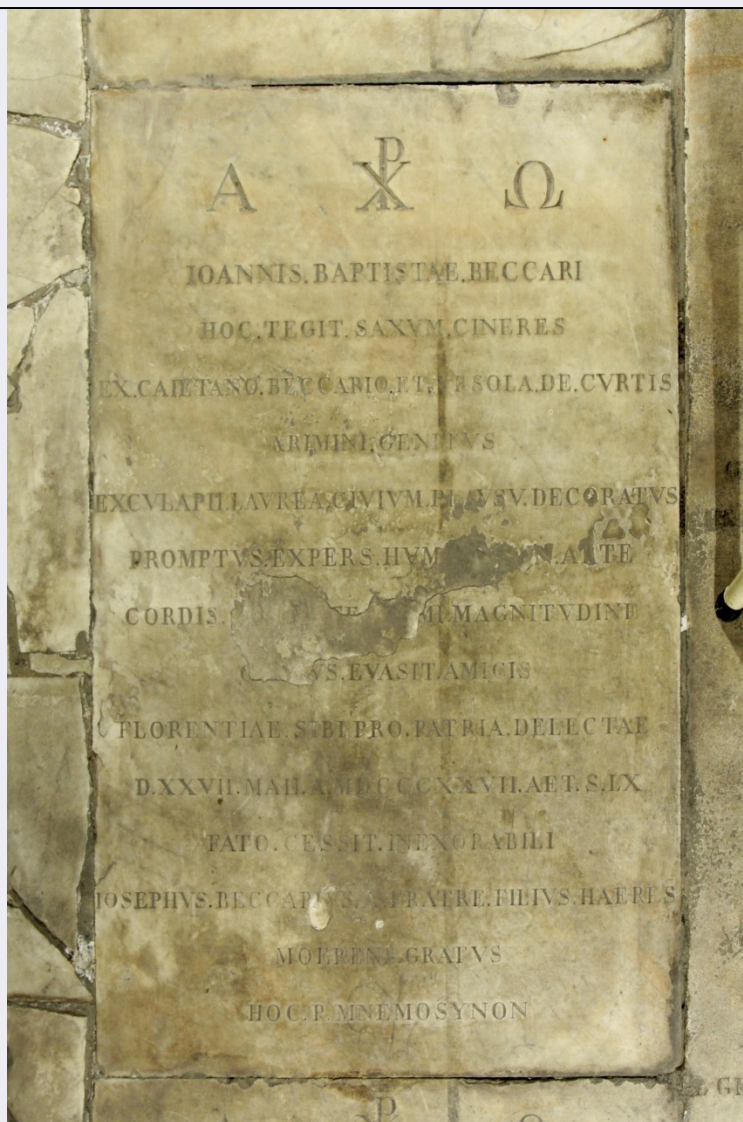 Α ☧ Ω
IOANNIS.BAPTISTAE.BECCARI
HOC.TEGIT.SAXVM.CINERES
EX.CAIETANO.BECCARIO.ET.VRSOLA.DE.CVRTIS
ARIMINI.GENITVS
EXCVLAPII.LAVREA.CIVIVM.PLAVSV.DECORATVS
PROMPTVS.EXPERS.HVM
CORDIS. MAGNITVDINE
EVASIT.AMICIS
FLORENTIAE.SIBI.PRO.PATRIA.DELECTAE
D.XXVII.MAII.A.MDCCCXXVII.AET.S.LX
FATO.CESSIT.INEXORABILI
IOSEPHVS.BECCARIVS. FRATRE.FILIVS.HAERES
MOERENS.GRATVS
HOC.P.MNEMOSYNON